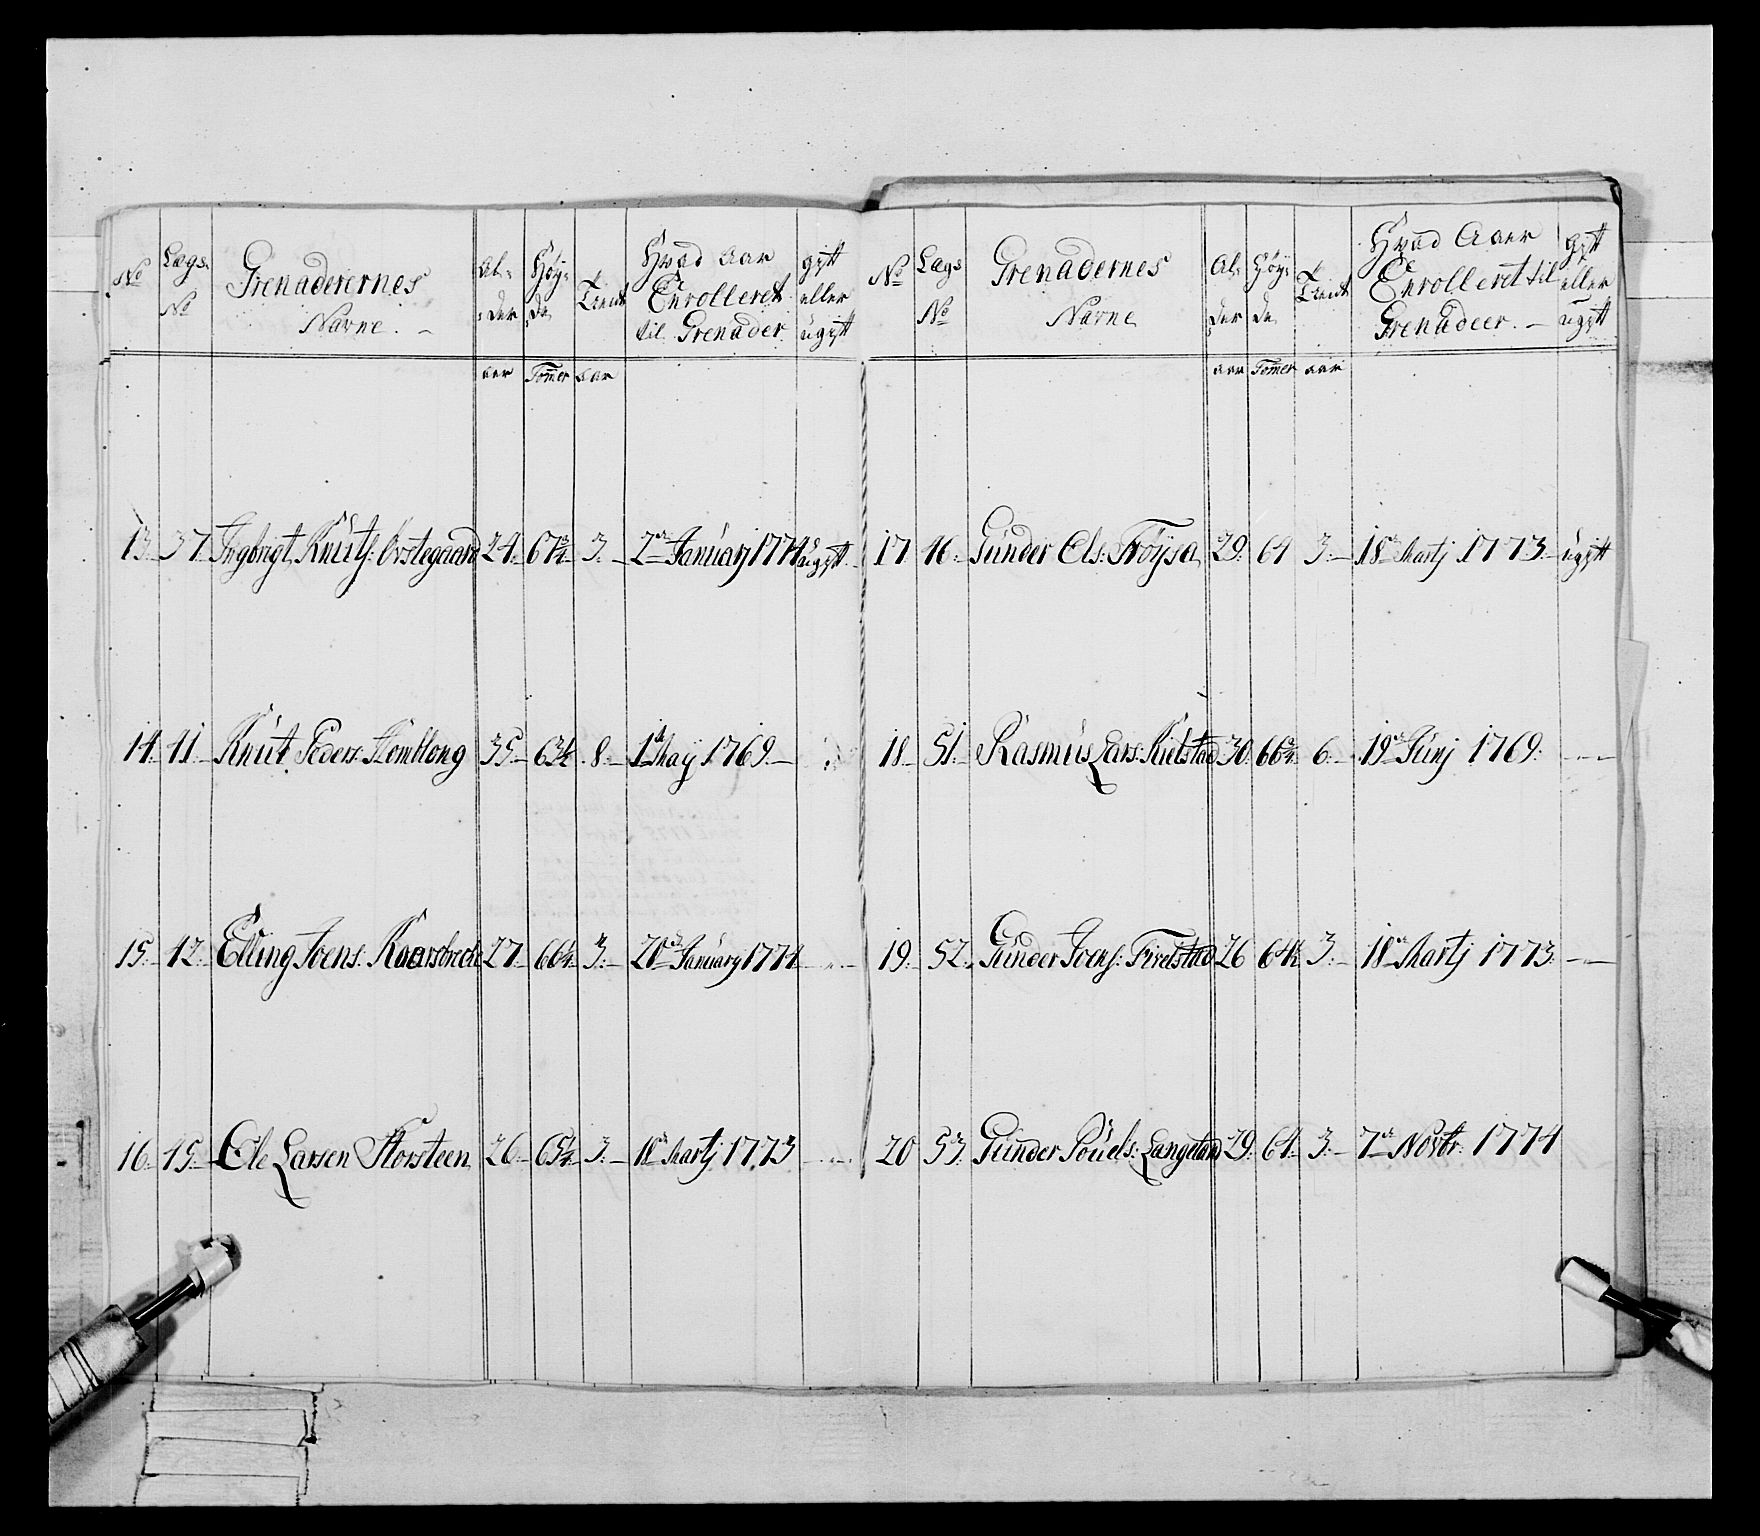 No Lægs No Grenaderernes Navne. Al: der Høy: de Tient Hvad Aar Enrolleret til Grenader gift eller ugift
aar Tomer aar
13. 37. Ingbrigt Knuts: Ovstegaard 24. 67¾ 3. 2de January 1774 ugift
14. 41. Knut Peders: 35. 63½ 8. 1te May 1769
15. 42. Elling Joens: 27. 66¼ 3. 20de January 1774
16. 45. Ole Larsen Storsteen 26. 65¾ 3. 18de Martj 1773
No Lægs No Grenadernes Navne Al: der Høy: de Tient Hvad Aaer Enrolleret til Grenadeer. gift eller ugift
aar Tomer aar
17 46. Gunder Ols: Frøysa 29. 64 3. 18de Martj 1773. ugift
18. 51. Rasmus Lars: Kielstad 30. 66¾ 6. 19de Junj 1769.
19. 52. Gunder Joens: 26 64½ 3. 18de Martj 1773.
20 53. Gunder Pouels: Langeland 29. 64. 3. 7de Novbr. 1774